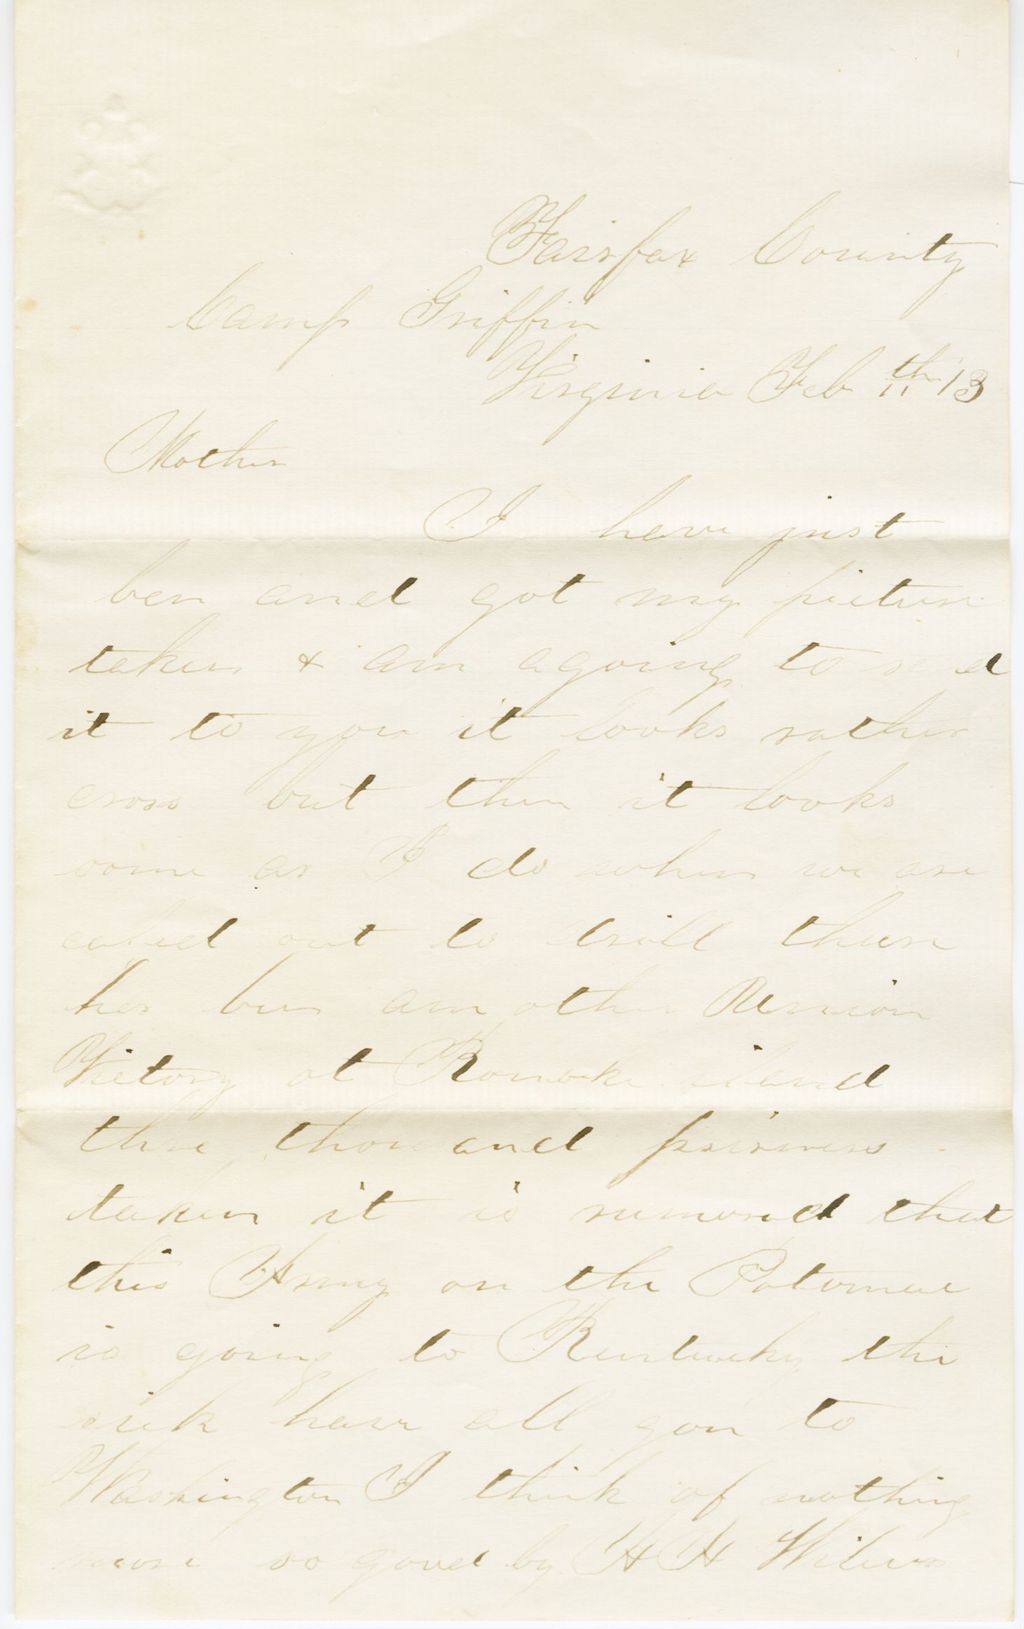 Fairfax County
Camp Griffin
Virginia Feb 13th
Mother
I have just
ben and got my picture
taken & am agoing to send
it to you it looks rather
cross but then it looks
some as I do when we are
caled out to drill thear
has bin another Union
Victory at Ronoke iland
thre thousand prisners
taken it is rumored that
this Army on the Potomac
is going to Kentucky the
sick have all gon to
Washington I think of nothing
more so good by H H Wilder